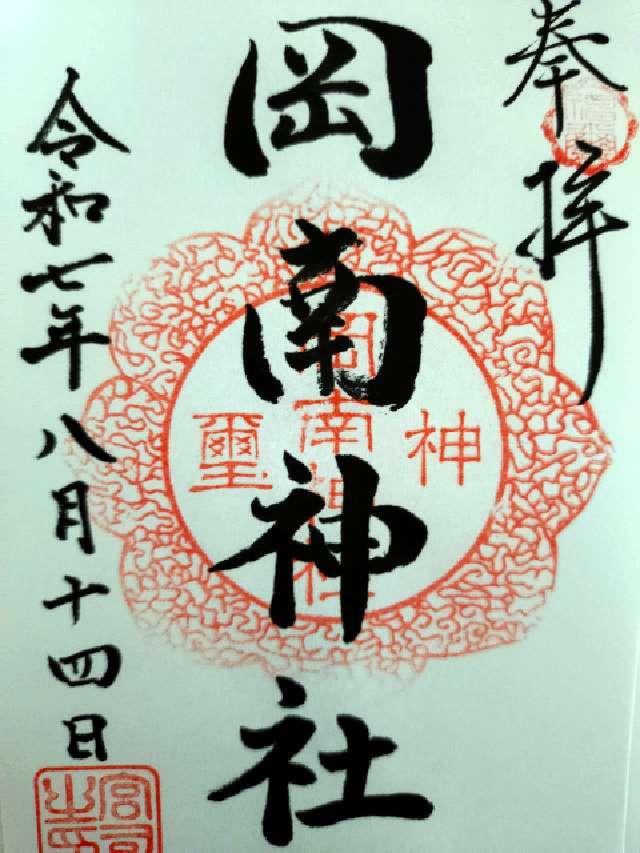 奉拝
岡南神社
神
岡南神社
璽
令和七年八月十四日
宮司之印